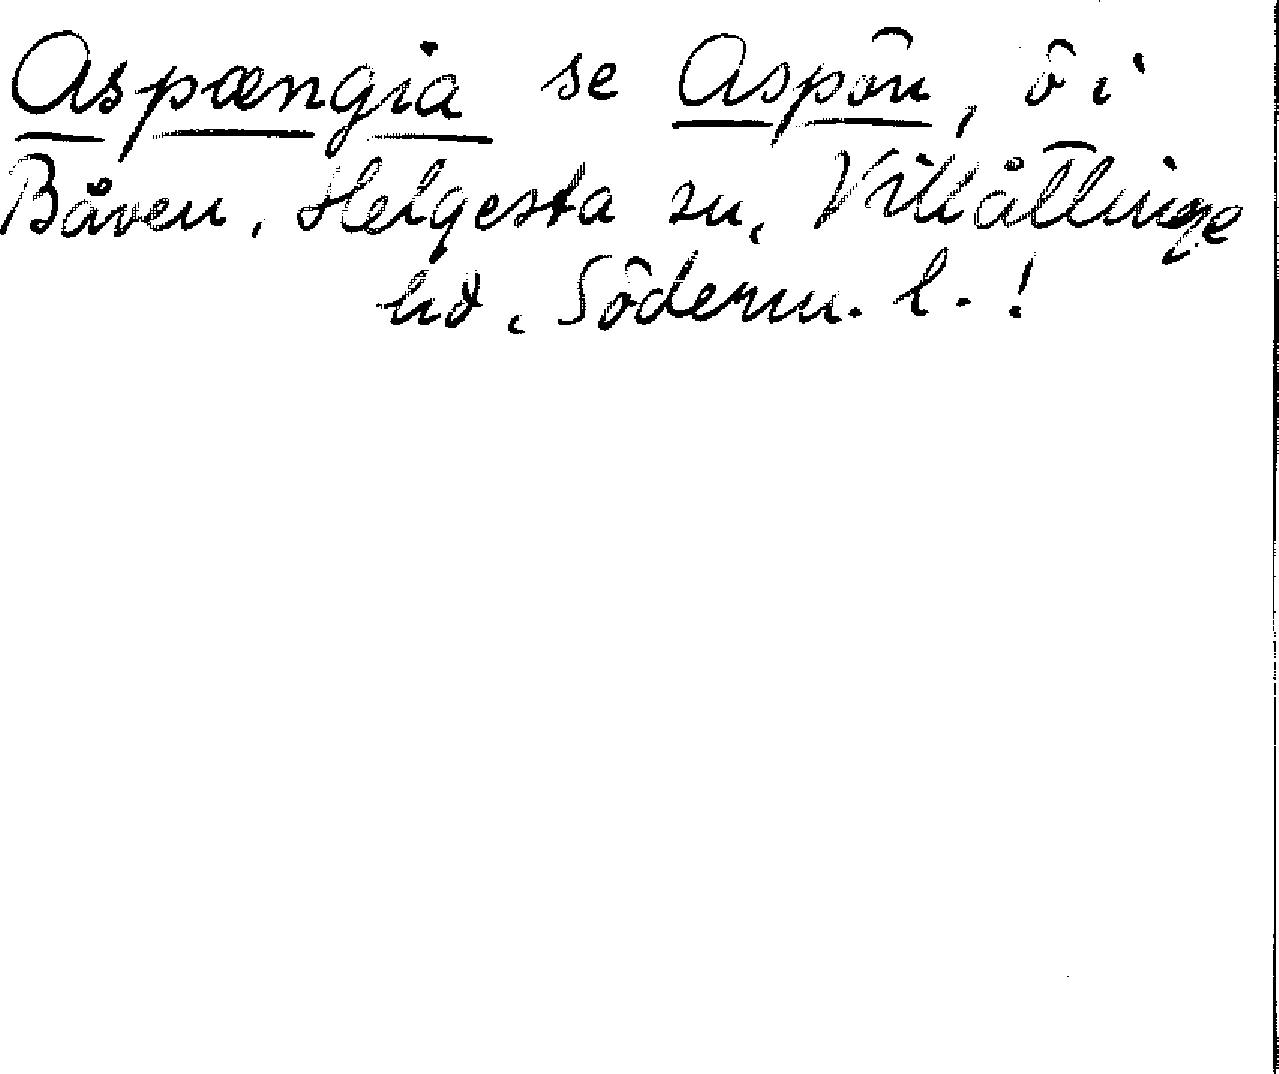 Aspængia se Aspön, ö i
Båven, Helgesta sn, Villåttinge
hd, Söderm. l. !